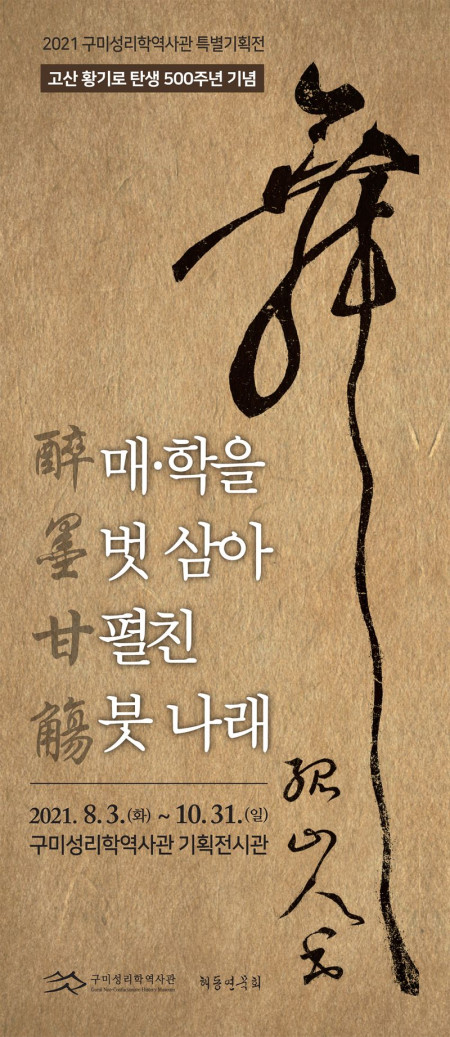 2021 구미성리학역사관 특별기획전
고산 황기로 탄생 500주년 기념
醉墨甘觴
매·학을
벗 삼아
펼친
붓 나래
2021. 8. 3.(화) ~ 10. 31.(일)
구미성리학역사관 기획전시관
孤山人書
구미성리학역사관
Gumi Neo-Confucianism History Museum
해동연묵회